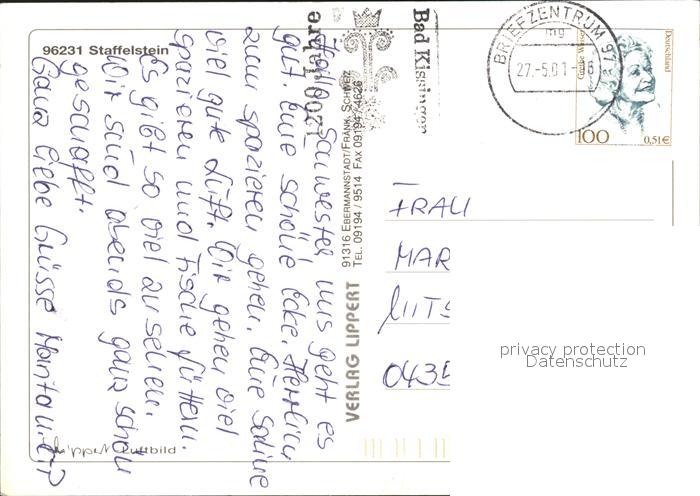 96231 Staffelstein
Hallo Schwester uns geht es
gut. Eine schöne Ecke. Herrlich
zum spazieren gehen. Eine Saline
wie gute Luft. Wir gehen viel
spazieren und Fische füttern.
Es gibt so viel zu sehen.
Wir sind abends ganz schön
geschafft.
Ganz liebe Grüsse
Luftbild
VERLAG LIPPERT
91316 EBERMANNSTADT/FRÄNK. SCHWEIZ
TEL. 09194 / 9514 FAX 09194 / 4626
1200 Jahre
Bad Kissingen
BRIEFZENTRUM 97
mg
27.-5.01.-
Deutschland
100
0,51€
FRAU
MAR
0435
privacy protection
Datenschutz